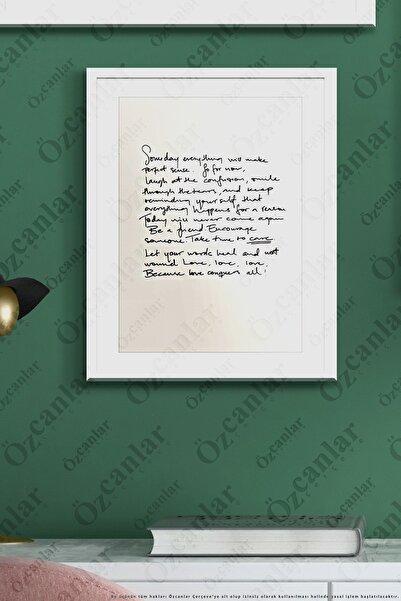 Someday everything will make
perfect sense. So for now,
laugh at the confusion, smile
through the tears, and keep
reminding yourself that
everything happens for a reason
Today will never come again
Be a friend. Encourage
someone. Take time to care
Let your words heal and not
wound. Love, love, love
Because love conquers all!
Özcanlar
Bu ürünün tüm hakları Özcanlar Çerçeve'ye ait olup izinsiz olarak kullanılması halinde yasal işlem başlatılacaktır.